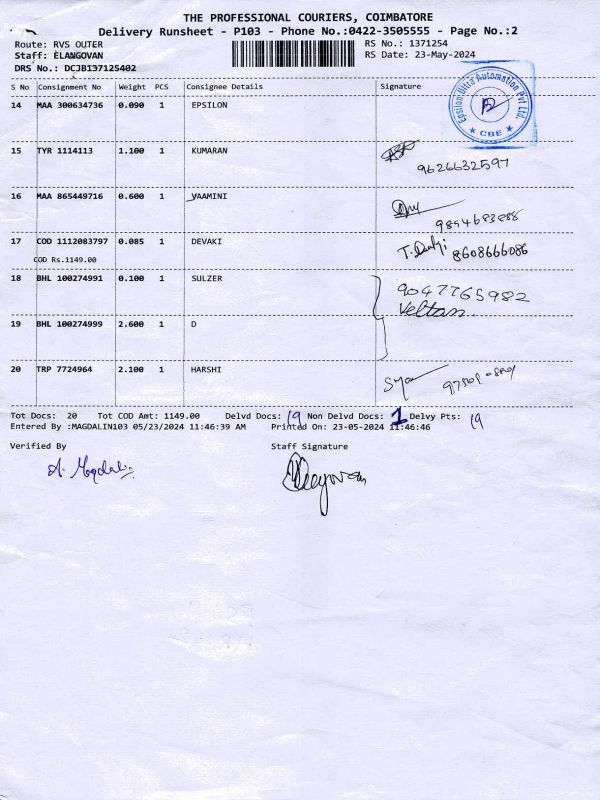 THE PROFESSIONAL COURIERS, COIMBATORE
Delivery Runsheet - P103 - Phone No.:0422-3505555 - Page No.:2
Route: RVS OUTER RS No.: 1371254
Staff: ELANGOVAN RS Date: 23-May-2024
DRS No.: DCJB137125402
S No Consignment No Weight PCS Consignee Details Signature
Epsilon Ultra Automation Pvt Ltd.
★ CBE ★
14 MAA 300634736 0.090 1 EPSILON
15 TYR 1114113 1.100 1 KUMARAN
9626632597
16 MAA 865449716 0.600 1 YAAMINI
17 COD 1112083797 0.085 1 DEVAKI 8608666086
COD Rs.1149.00
18 BHL 100274991 0.100 1 SULZER 9047765982
19 BHL 100274999 2.600 1 D
20 TRP 7724964 2.100 1 HARSHI
Tot Docs: 20 Tot COD Amt: 1149.00 Delvd Docs: 19 Non Delvd Docs: 1 Delvy Pts: 19
Entered By :MAGDALIN103 05/23/2024 11:46:39 AM Printed On: 23-05-2024 11:46:46
Verified By Staff Signature
A. Magdalin